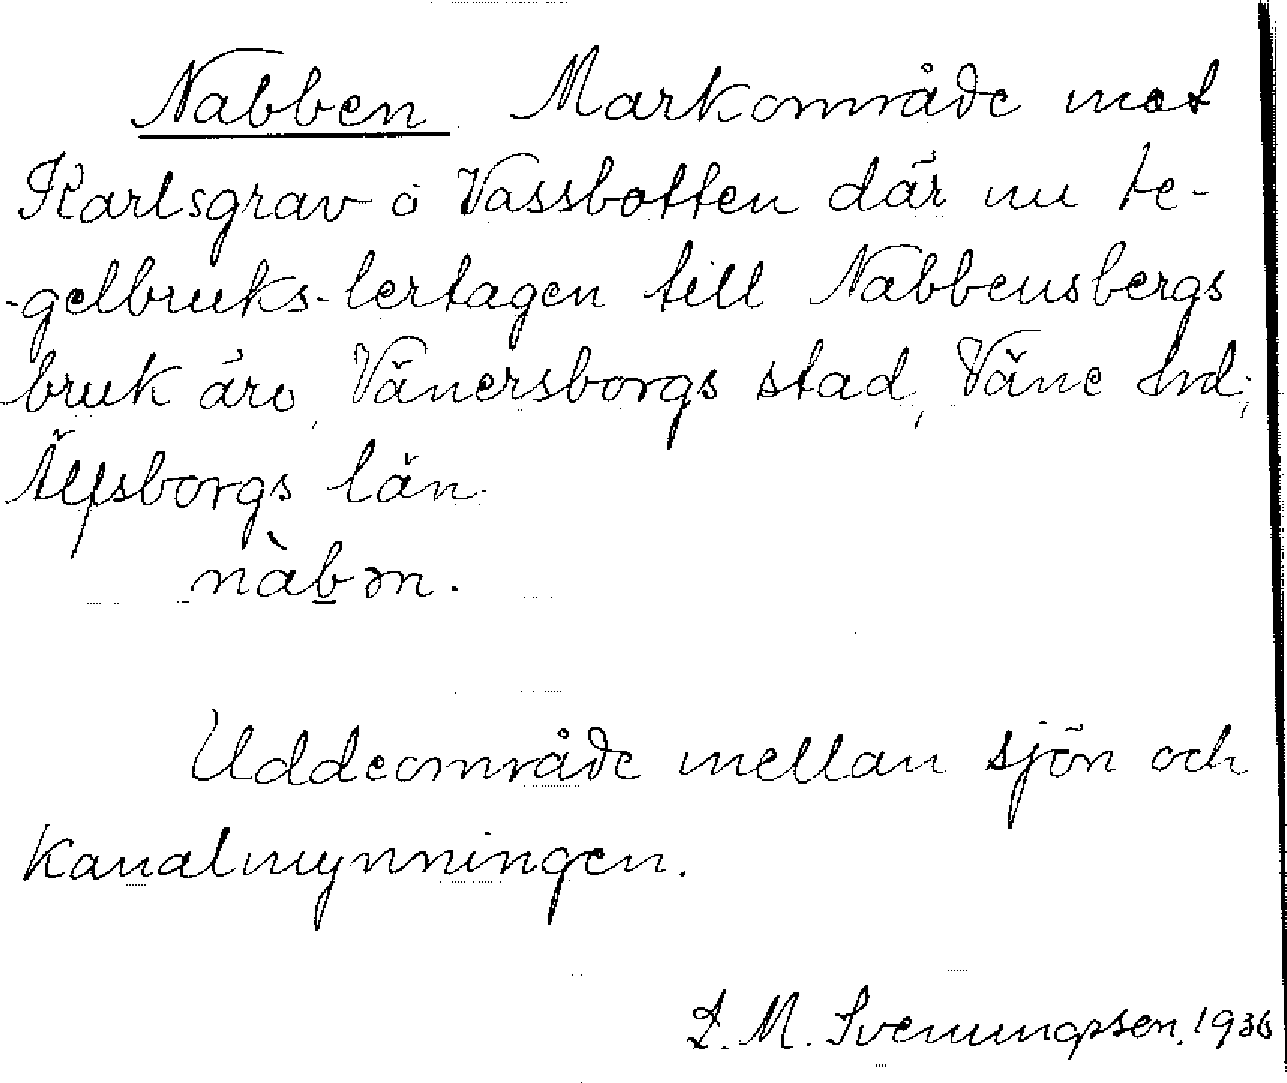 Nabben Markområde mot
Karlsgrav o Vassbotten där nu te-
-gelbruks-lertagen till Nabbensbergs
bruk äro, Vänersborgs stad, Väne hd;
Älfsborgs län.
nàb̲ən.
Uddeområde mellan sjön och
kanalmynningen.
L. M. Svenungsson, 1936